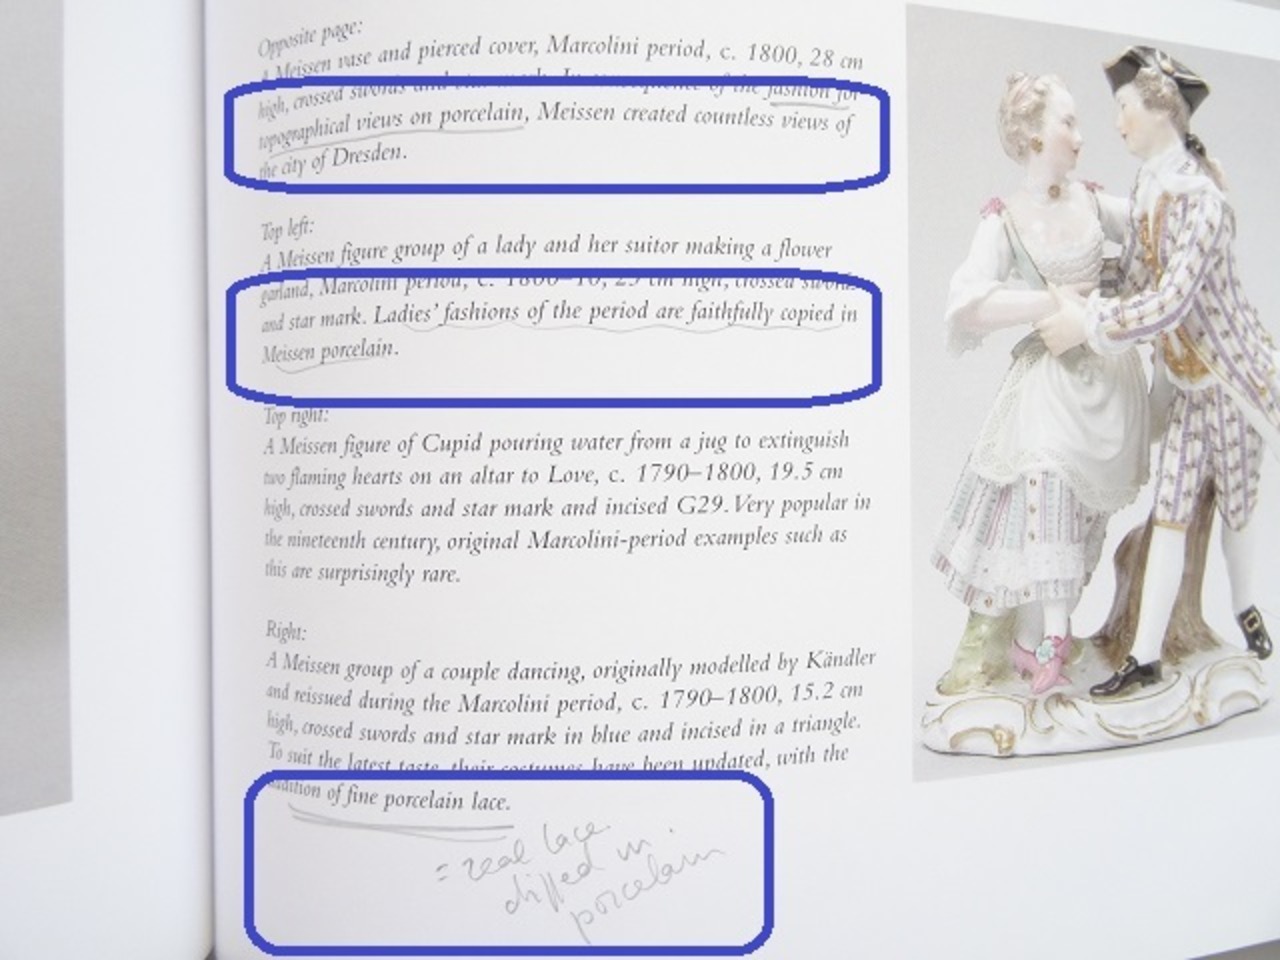 Opposite page:
A Meissen vase and pierced cover, Marcolini period, c. 1800, 28 cm
high, crossed swords and star mark. In consequence of the fashion for
topographical views on porcelain, Meissen created countless views of
the city of Dresden.
Top left:
A Meissen figure group of a lady and her suitor making a flower
garland, Marcolini period, c. 1800–10, 23 cm high, crossed swords
and star mark. Ladies' fashions of the period are faithfully copied in
Meissen porcelain.
Top right:
A Meissen figure of Cupid pouring water from a jug to extinguish
two flaming hearts on an altar to Love, c. 1790–1800, 19.5 cm
high, crossed swords and star mark and incised G29. Very popular in
the nineteenth century, original Marcolini-period examples such as
this are surprisingly rare.
Right:
A Meissen group of a couple dancing, originally modelled by Kändler
and reissued during the Marcolini period, c. 1790–1800, 15.2 cm
high, crossed swords and star mark in blue and incised in a triangle.
To suit the latest taste, their costumes have been updated, with the
addition of fine porcelain lace.
= real lace
dipped in
porcelain